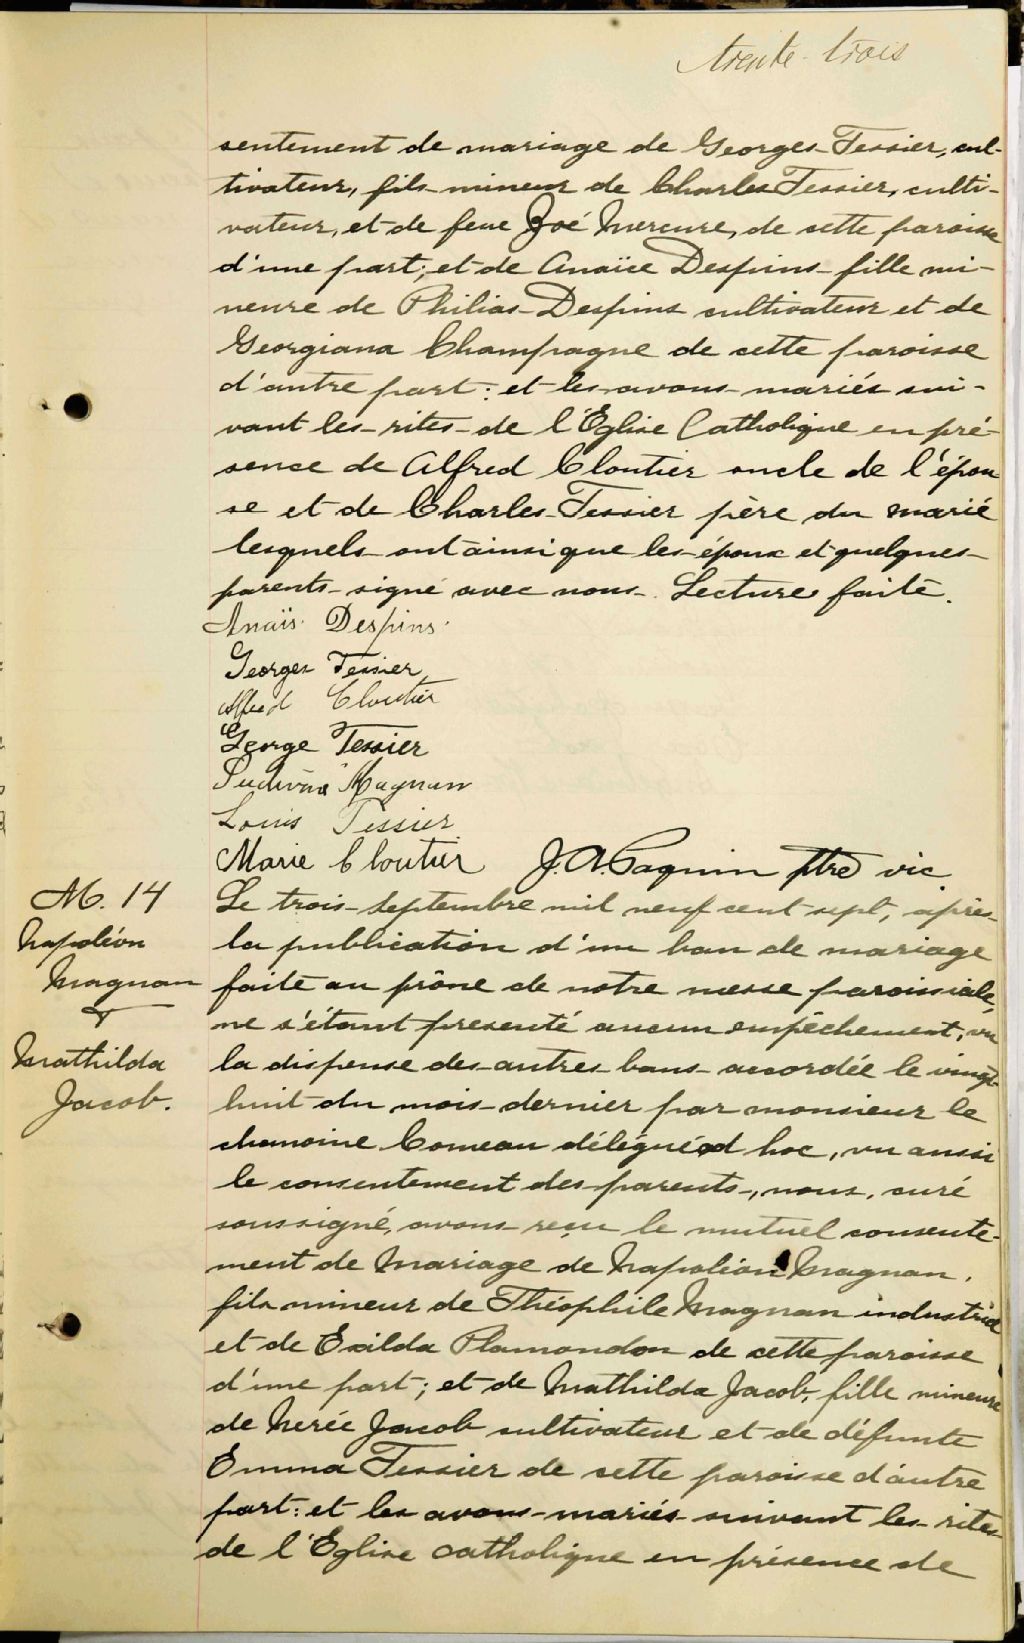 trente-trois
sentement de mariage de Georges Tessier, cul-
tivateur, fils mineur de Charles Tessier, culti-
vateur, et de feue Zoé Mercure, de cette paroisse
d'une part; et de Anaïse Despins fille mi-
neure de Philias Despins cultivateur et de
Georgiana Champagne de cette paroisse
d'autre part: et les avons mariés sui-
vant les rites de l'Église Catholique en pré-
sence de Alfred Cloutier oncle de l'épou
se et de Charles Tessier père du marié
lesquels ont ainsi que les époux et quelques
parents signé avec nous. Lecture faite.
Anaïs Despins
Georges Tessier
Alfred Cloutier
George Tessier
Magnan
Louis Tessier
Marie Cloutier J. A. Paquin ptre vic
M. 14
Napoléon
Magnan
&
Mathilda
Jacob.
Le trois septembre mil neuf cent sept, après
la publication d'un ban de mariage
faite au prône de notre messe paroissiale,
ne s'étant présenté aucun empêchement, vu
la dispense des autres bans accordée le vingt-
huit du mois dernier par monsieur le
chanoine Comeau délégué ad hoc, vu aussi
le consentement des parents, nous, curé
soussigné, avons reçu le mutuel consente-
ment de mariage de Napoléon Magnan,
fils mineur de Théophile Magnan industriel
et de Exilda Plamondon de cette paroisse
d'une part; et de Mathilda Jacob, fille mineure
de Nerée Jacob cultivateur et de défunte
Emma Tessier de cette paroisse d'autre
part: et les avons mariés suivant les rites
de l'Eglise catholique en présence de